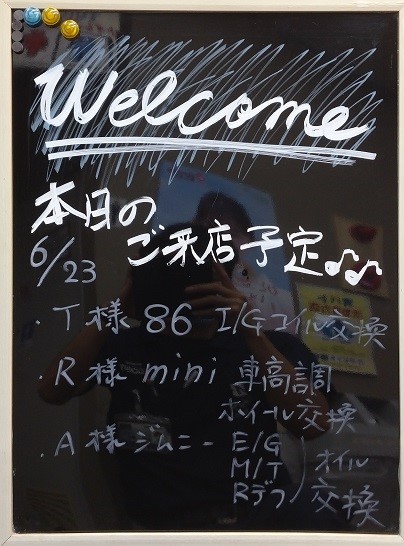 Welcome
本日の
6/23 ご来店予定♪♫
・T様 86 I/Gコイル交換
・R様 mini 車高調
ホイール交換
・A様 ジムニー E/G
M/T オイル
Rデフ 交換